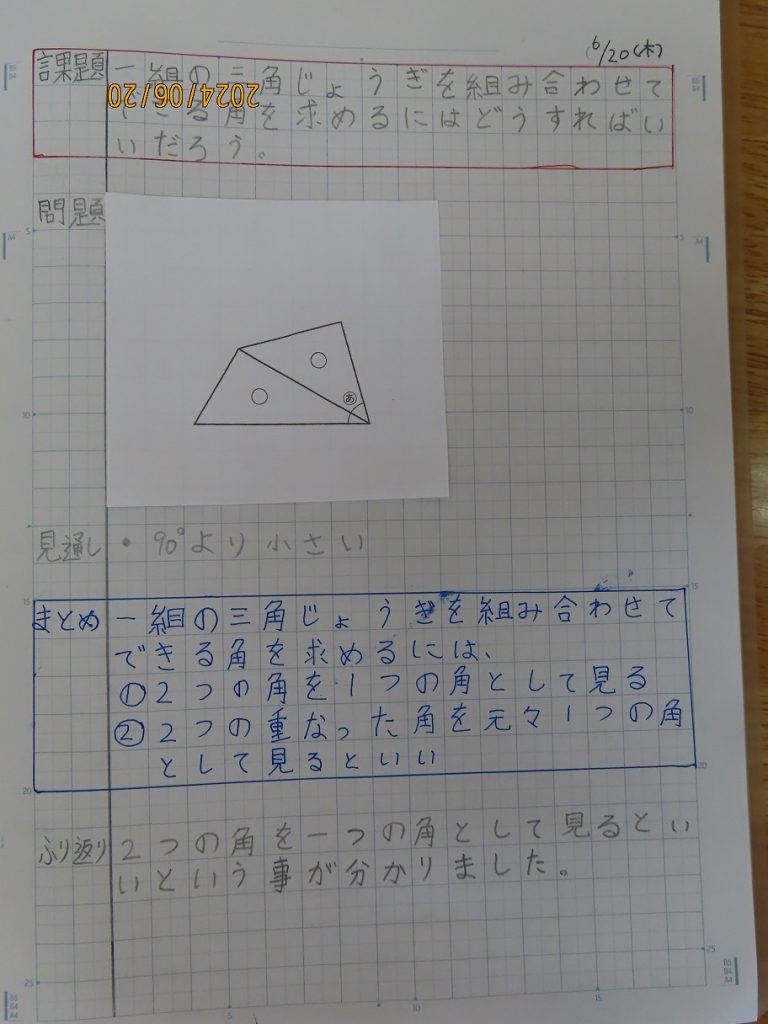 6/20(木)
課題 一組の三角じょうぎを組み合わせて
2024/06/20
できる角を求めるにはどうすればい
いだろう。
問題
あ
見通し ・90°より小さい
まとめ 一組の三角じょうぎを組み合わせて
できる角を求めるには、
①2つの角を1つの角として見る
②2つの重なった角を元々1つの角
として見るといい
ふり返り 2つの角を一つの角として見るとい
いという事が分かりました。